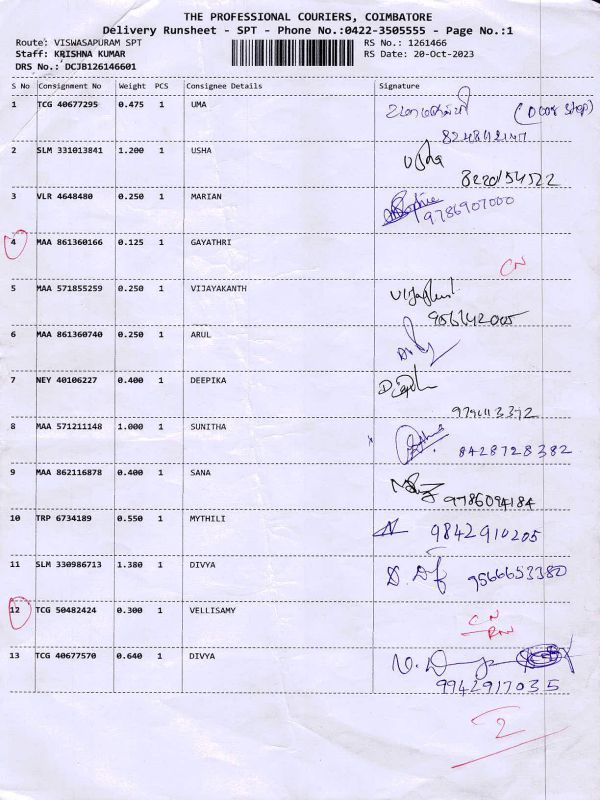 THE PROFESSIONAL COURIERS, COIMBATORE
Delivery Runsheet - SPT - Phone No.:0422-3505555 - Page No.:1
Route: VISWASAPURAM SPT RS No.: 1261466
Staff: KRISHNA KUMAR RS Date: 20-Oct-2023
DRS No.: DCJB126146601
S No Consignment No Weight PCS Consignee Details Signature
1 TCG 40677295 0.475 1 UMA (Door step)
2 SLM 331013841 1.200 1 USHA Usha
8220154522
3 VLR 4648480 0.250 1 MARIAN Sophia
9786907000
4 MAA 861360166 0.125 1 GAYATHRI
CN
5 MAA 571855259 0.250 1 VIJAYAKANTH
6 MAA 861360740 0.250 1 ARUL
7 NEY 40106227 0.400 1 DEEPIKA
8 MAA 571211148 1.000 1 SUNITHA 8428728382
9 MAA 862116878 0.400 1 SANA
9786094184
10 TRP 6734189 0.550 1 MYTHILI 9842910205
11 SLM 330986713 1.380 1 DIVYA 9566653380
12 TCG 50482424 0.300 1 VELLISAMY CN
RN
13 TCG 40677570 0.640 1 DIVYA
9942917035
2